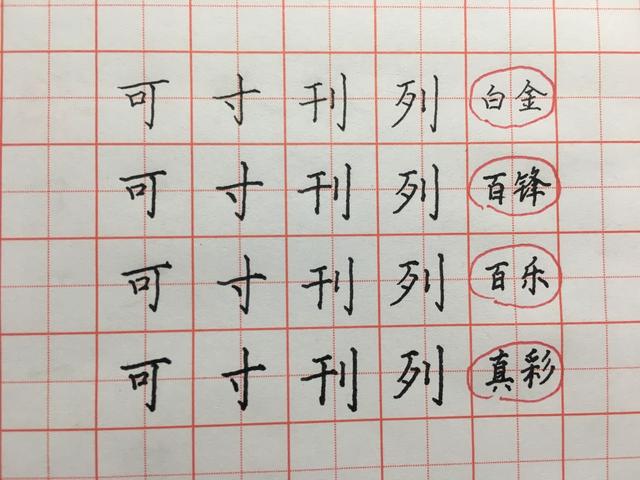 可 寸 刊 列 白金
可 寸 刊 列 百锋
可 寸 刊 列 百乐
可 寸 刊 列 真彩